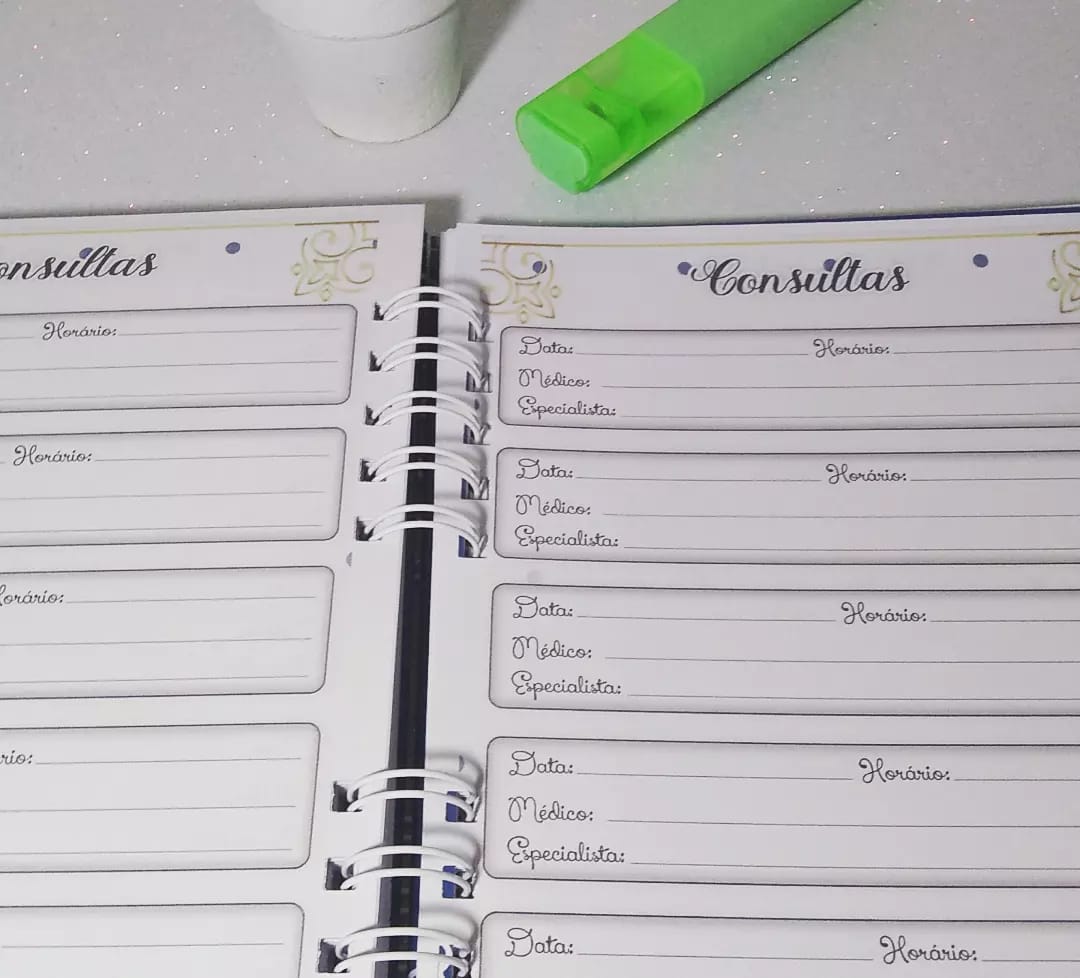 onsultas
Horário:
Horário:
orário:
rio:
Consultas
Data: Horário:
Médico:
Especialista:
Data: Horário:
Médico:
Especialista:
Data: Horário:
Médico:
Especialista:
Data: Horário:
Médico:
Especialista:
Data: Horário: